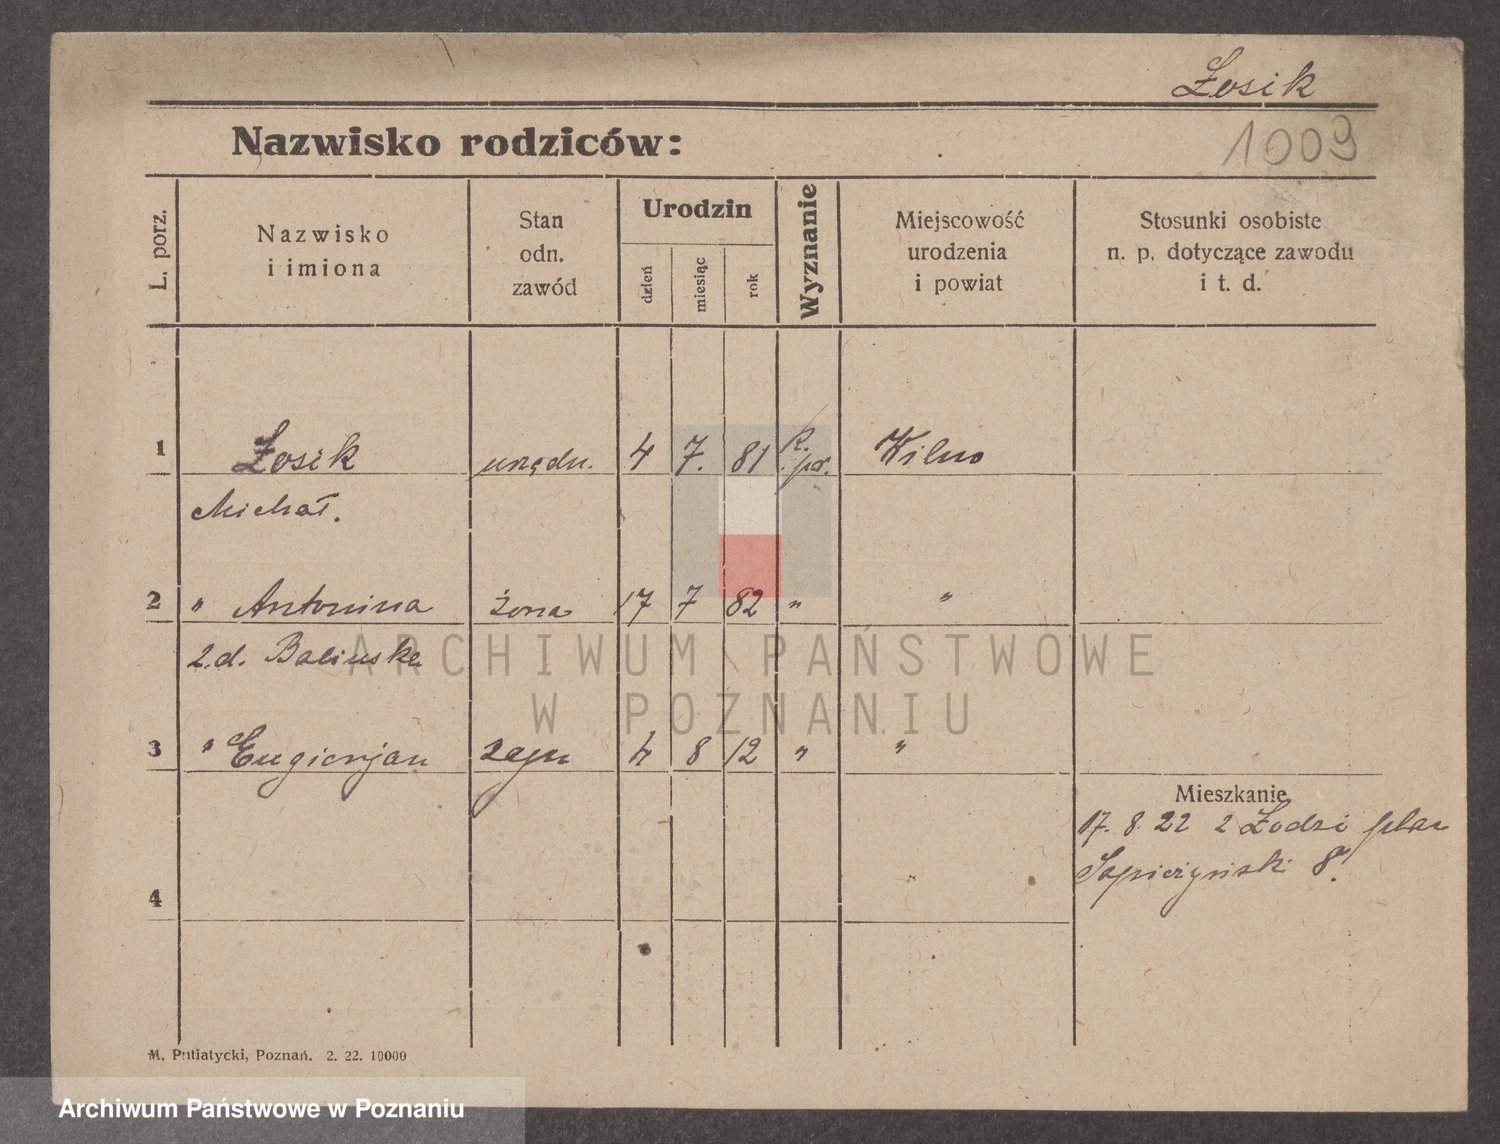 Łosik
1009
Nazwisko rodziców:
L. porz.
Nazwisko i imiona
Stan odn. zawód
Urodzin
dzień
miesiąc
rok
Wyznanie
Miejscowość urodzenia i powiat
Stosunki osobiste n. p. dotyczące zawodu i t. d.
1 Łosik urzędn. 4 7. 81 R. Wilno
Michał.
2 " Antonina żona 17 7 82 " "
z.d. Balińska
3 " Eugienjan 4 8 12 " "
Mieszkanie
17. 8. 22 z Łodzi plac
Sapieżyński 8.
4
M. Putiatycki, Poznań. 2. 22. 10000
ARCHIWUM PAŃSTWOWE
W POZNANIU
Archiwum Państwowe w Poznaniu